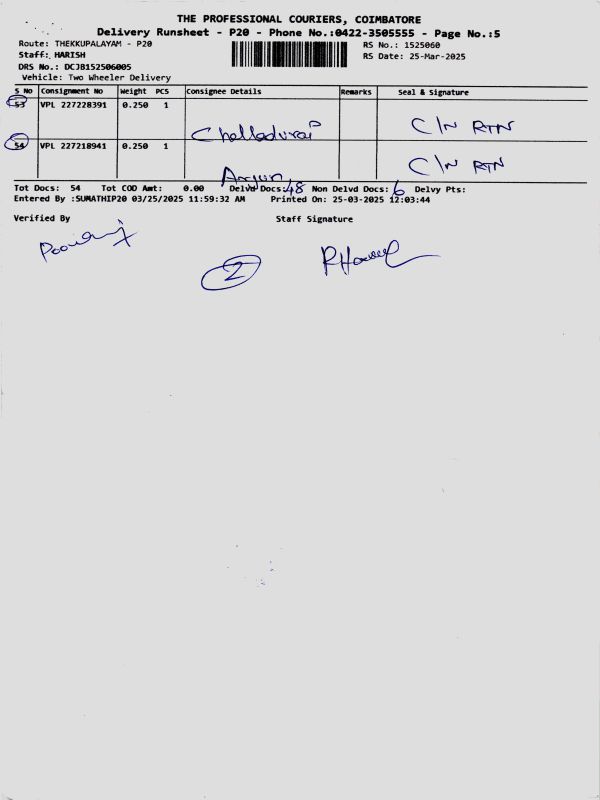 THE PROFESSIONAL COURIERS, COIMBATORE
Delivery Runsheet - P20 - Phone No.:0422-3505555 - Page No.:5
Route: THEKKUPALAYAM - P20 RS No.: 1525060
Staff: HARISH RS Date: 25-Mar-2025
DRS No.: DCJB152506005
Vehicle: Two Wheeler Delivery
S No Consignment No Weight PCS Consignee Details Remarks Seal & Signature
53 VPL 227228391 0.250 1
Chelladurai C/N RTN
54 VPL 227218941 0.250 1
Arjun C/N RTN
Tot Docs: 54 Tot COD Amt: 0.00 Delvd Docs:48 Non Delvd Docs: 6 Delvy Pts:
Entered By :SUMATHIP20 03/25/2025 11:59:32 AM Printed On: 25-03-2025 12:03:44
Verified By Staff Signature
2